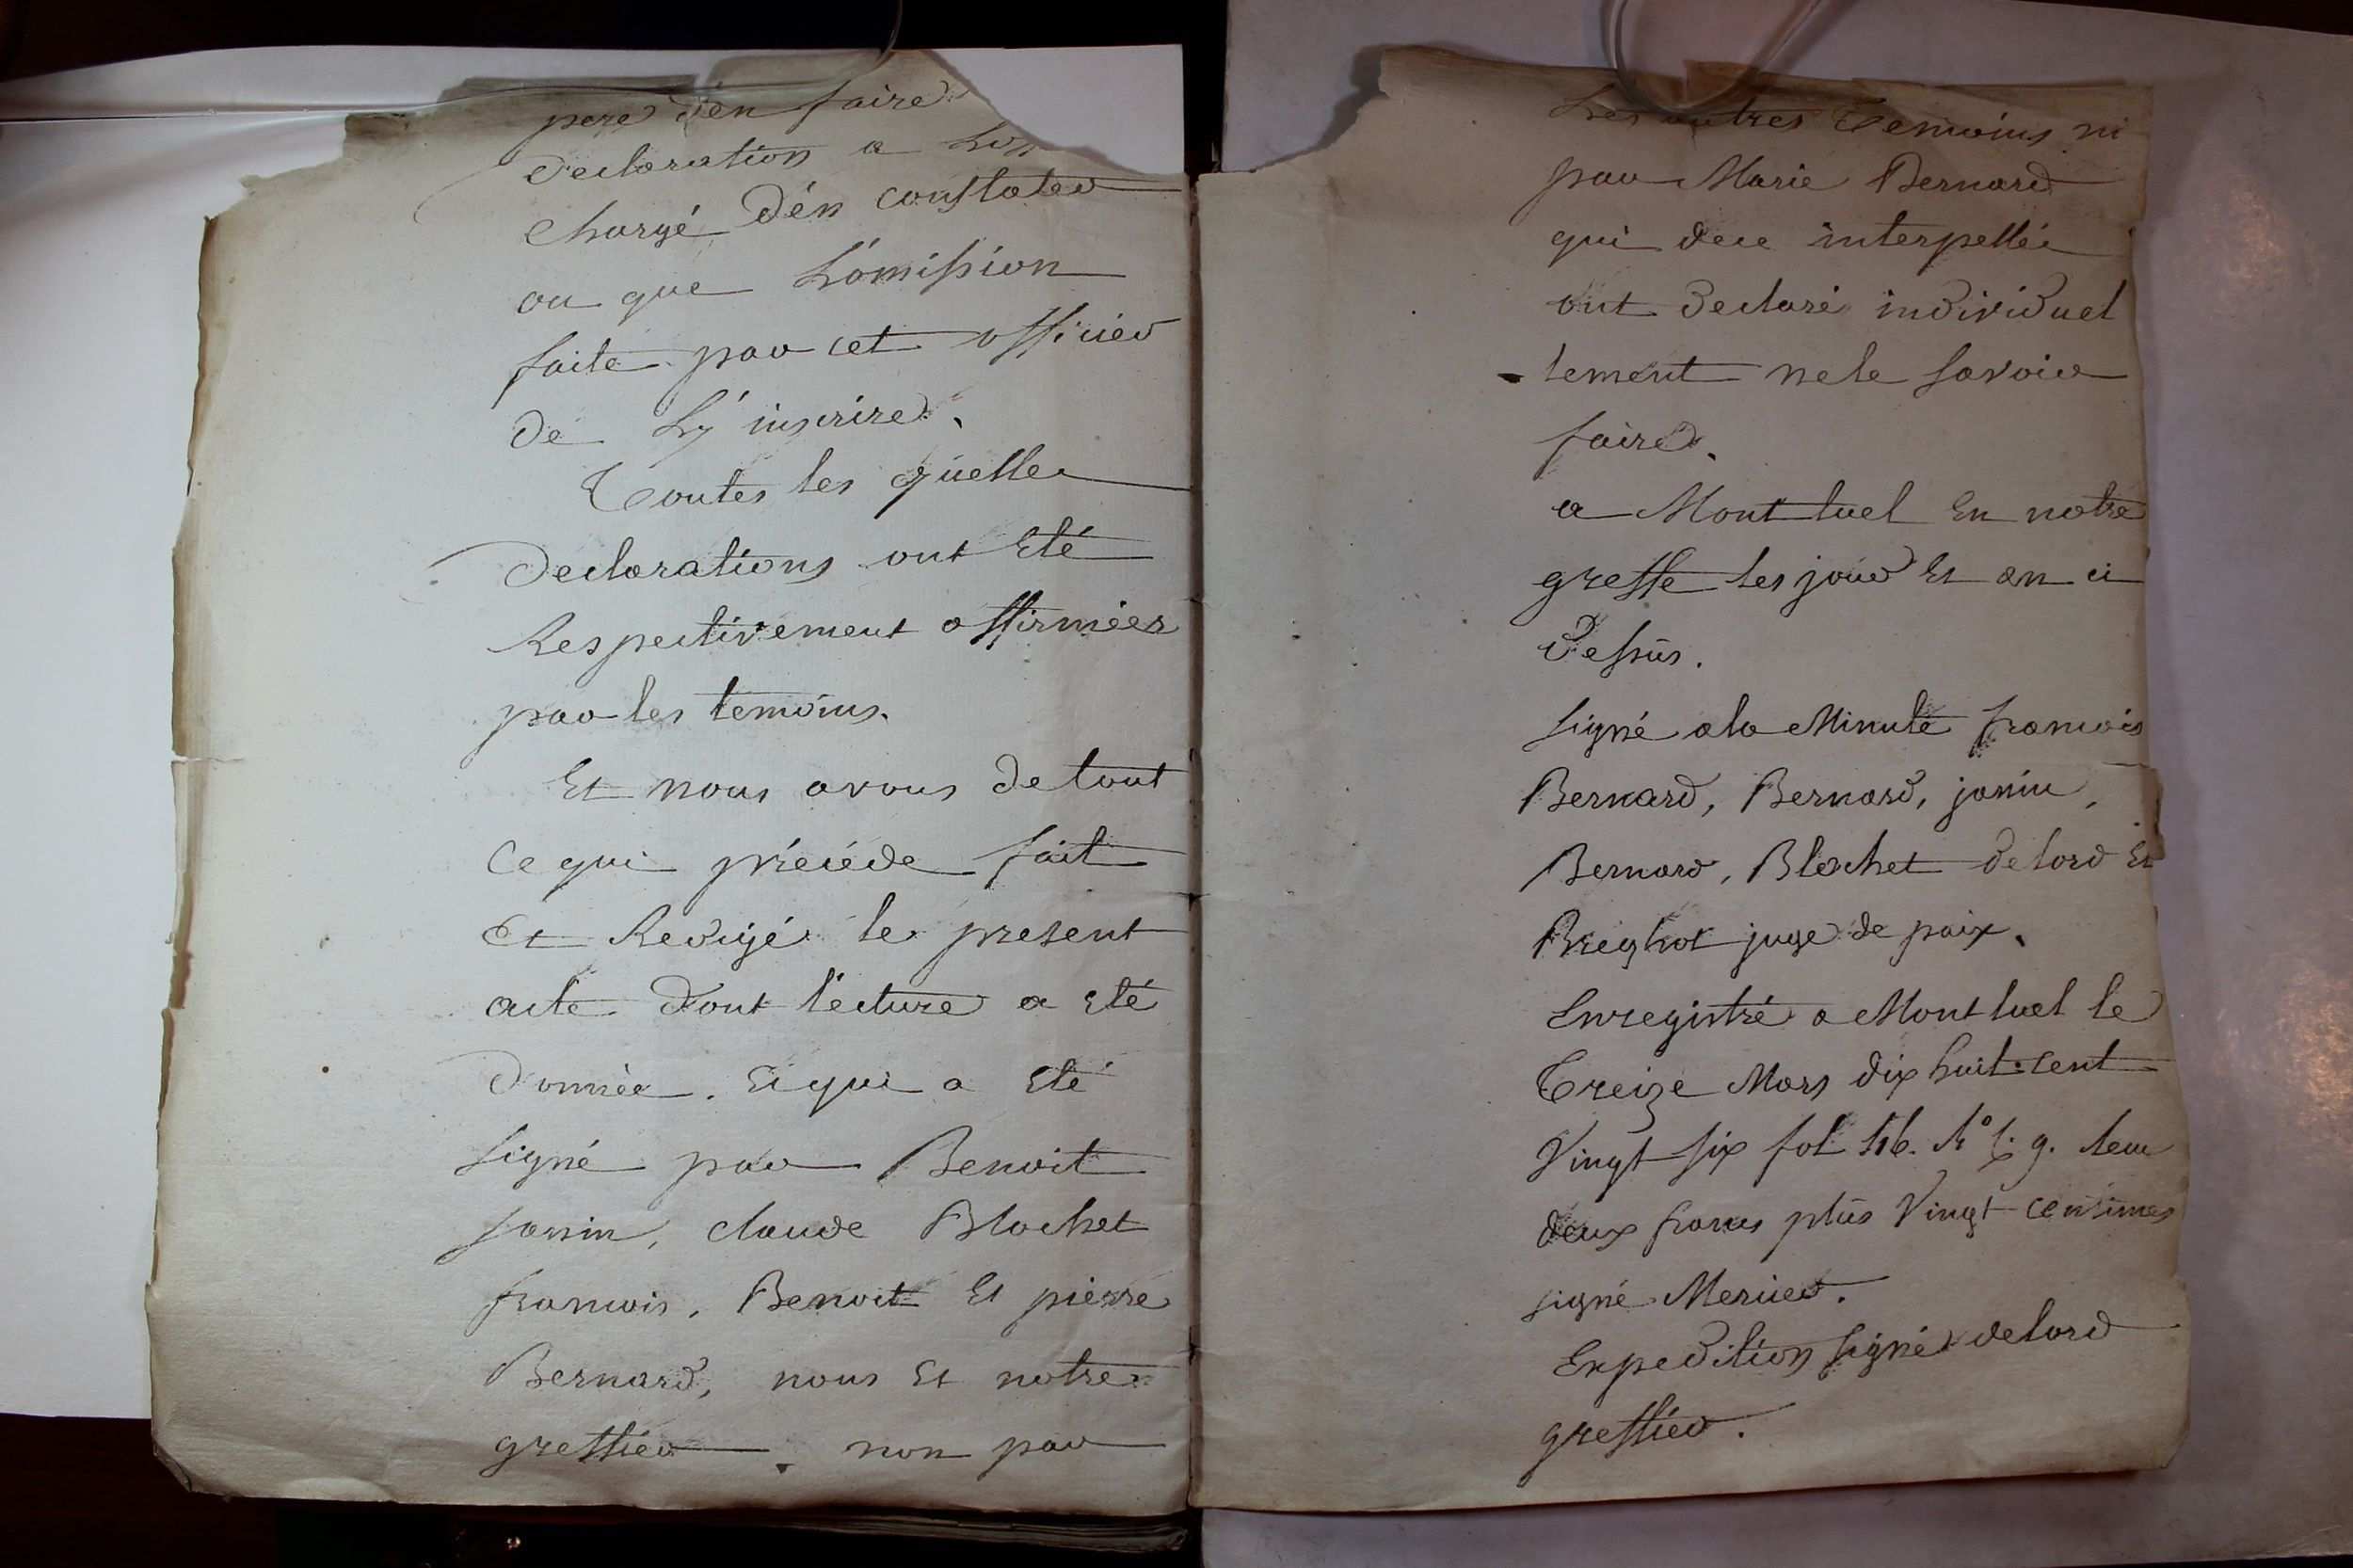 pere d'en faire
declaration a
chargé d'én constater
ou que L'omission
faite par cet officier
de L'y inscrire.
Toutes les quelles
declarations ont Eté
Respectivement affirmées
par les temoins.
Et nous avons de tout
ce qui précéde fait
Et Redigé le present
acte dont lecture a eté
donnée. Et qui a Eté
signé par Benoit
janin, claude Blochet
francois, Benoit Et pierre
Bernard, nous Et notre
greffier, non par
Les autres Temoins ni
par Marie Bernard
qui de ce interpellés
ont declaré individuel
lement ne le savoir
faire.
a Montluel En notre
greffe les jour Et an ci
dessus.
signé a la Minute francois
Bernard, Bernard, janin,
Bernard, Blochet delord Et
Breghot juge de paix.
Enregistré a Montluel le
Treize Mars dix huit cent
Vingt six fol 116. R° 9.
deux francs plus Vingt centimes
signé Mercier.
Expedition signé delord
greffier.